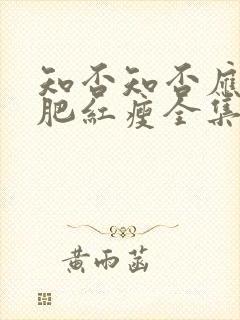 知否知否應
肥紅瘦全集
黃雨菡